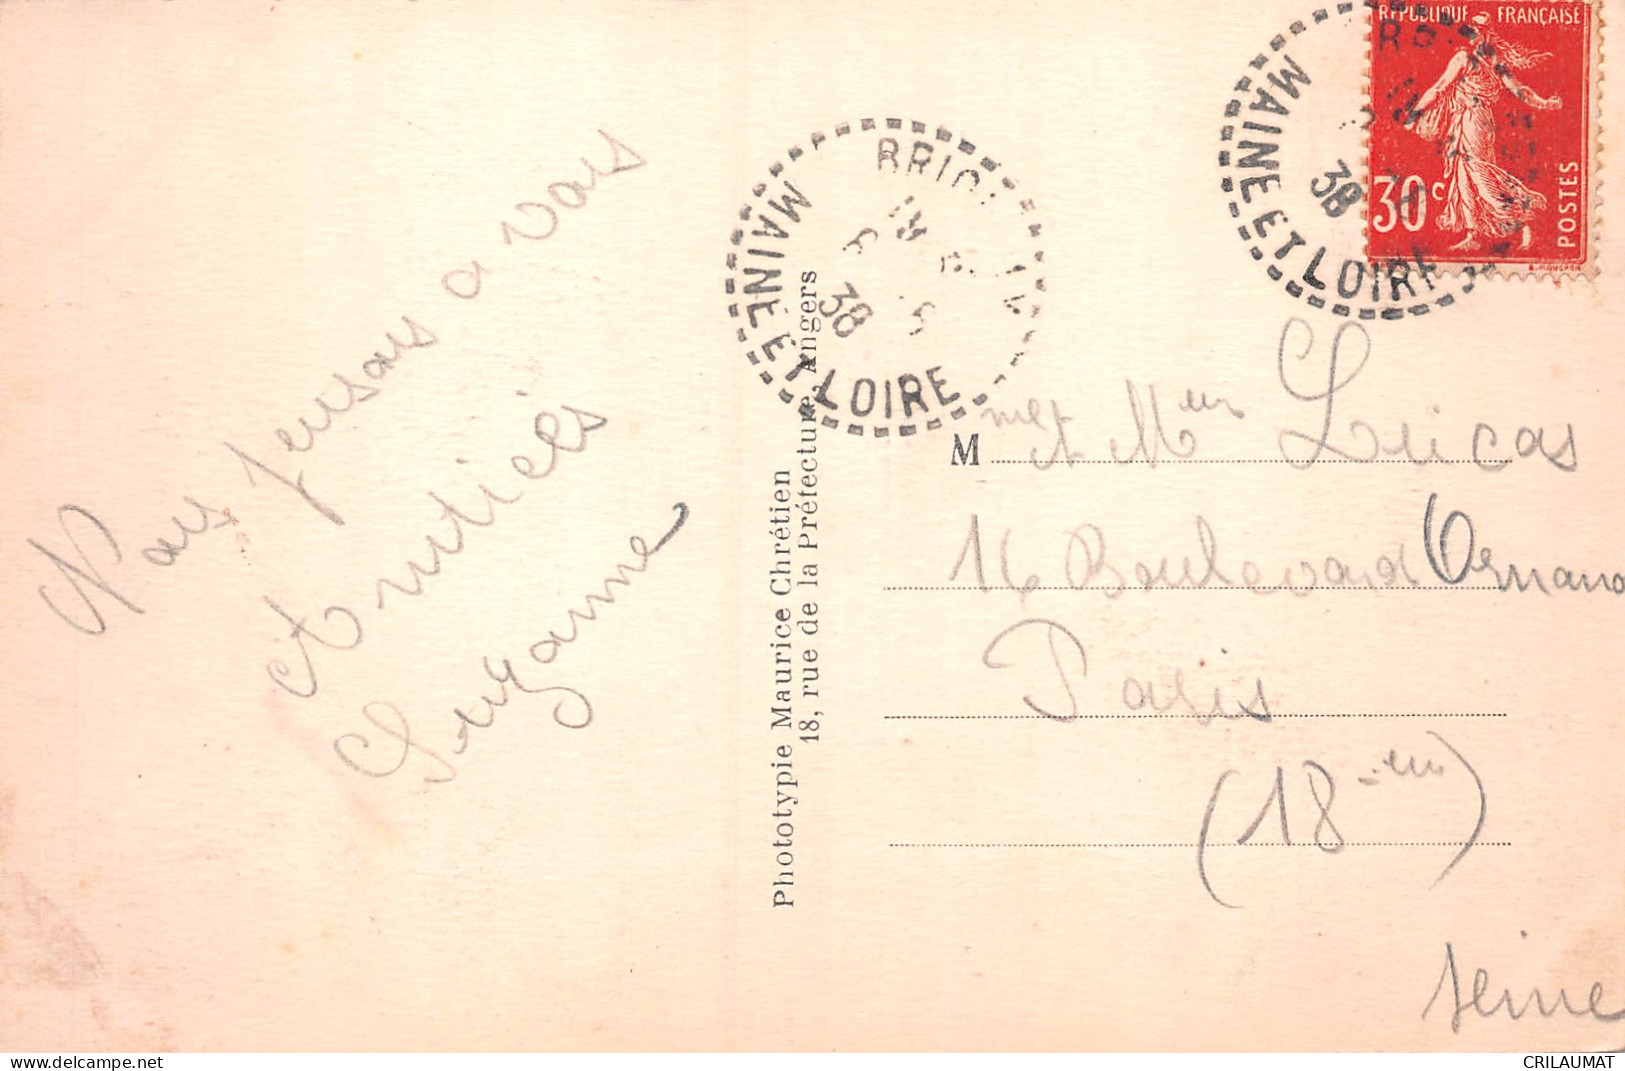 Nous pensons a vous
et Amitiés
Suzanne
Phototypie Maurice Chrétien
18, rue de la Préfecture, Angers
MAINE ET LOIRE
38
RÉPUBLIQUE FRANÇAISE
30c
POSTES
MAINE ET LOIRE
38
M me et Mr Lucas
16 Boulevard Ornano
Paris
(18 em)
Seine
CRILAUMAT